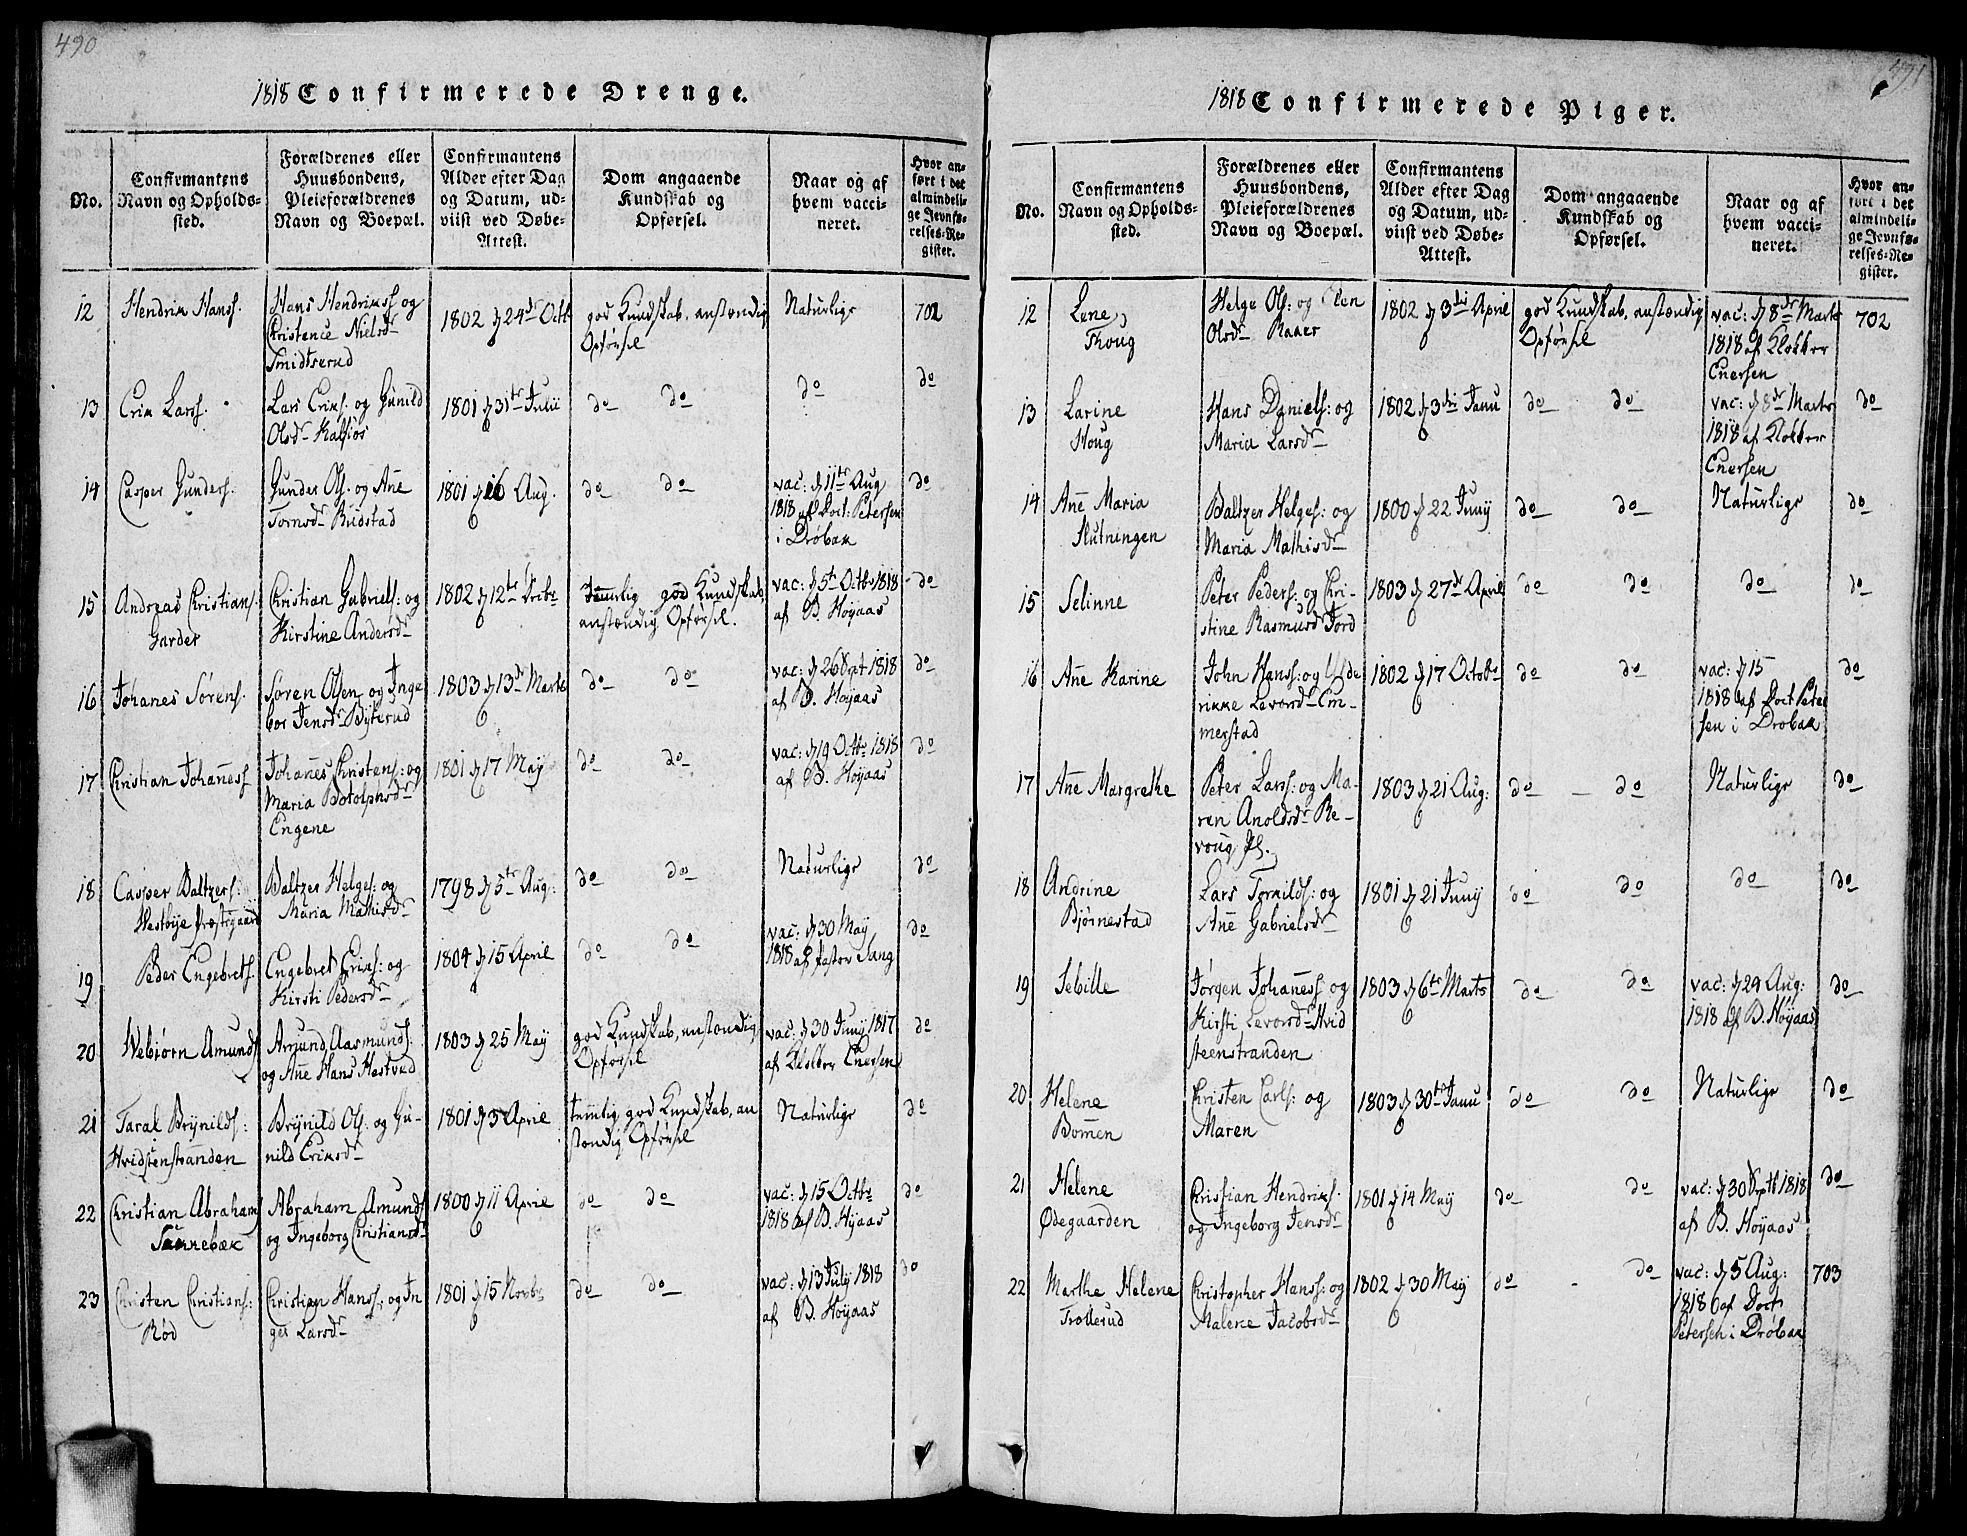 490
1818 Confirmerede Drenge.
No.
Confirmantens
Navn og Opholds-
sted.
Forældrenes eller
Huusbondens,
Pleieforældrenes
Navn og Boepæl.
Confirmantens
Alder efter Dag
og Datum, ud-
viist ved Døbe-
Attest.
Dom angaaende
Kundskab og
Opførsel.
Naar og af
hvem vacci-
neret.
Hvor an-
ført i det
almindeli-
ge Jevnfø-
relses-Re-
gister.
12
Hendrik Hanss.
Hans Hendrikss og
Christence Nielsdr
Smidtsrud
1802 d 24de Octb
god Kundskab, anstændig
Opførsel
Naturlige
702
13
Erik Larss.
Lars Eriks: og Gunild
Olsdr Kalsiøs
1801 d 31te Julii
do do
do
do
14
Casper Gunders.
Gunder Ols: og Ane
Tomsdr Rudstad
1801 d 16 Aug.
do do
vac: d 11te Aug
1818 af Doct: Petersen
i Drøbak
do
15
Andreas Christians.
Garder
Christian Gabriels: og
Kirstine Andersdr
1802 d 12te Octbr
temmelig god Kundskab,
anstændig Opførsel.
vac: d 5te Octbr 1818
af B. Høyaas
do
16
Johanes Sørens.
Søren Olsen og Inge
bor Jensdr Bykerud
1803 d 13de Marts
do do
vac: d 26 Sept 1818
af B. Høyaas
do
17
Christian Johaness
Johanes Christens: og
Maria Botolphsdr
Engene
1801 d 17 May
do do
vac: d 19 Octbr 1818
af B. Høyaas
do
18
Casper Baltzers:
Vestbye Præstegaard
Baltzer Helges: og
Maria Mathisdr
1798 d 5te Aug:
do do
Naturlige
do
19
Peder Engebrets.
Engebret Eriks: og
Kirsti Pedersdr
1804 d 15 April
do do
vac: d 30 May
1818 af pastor Sang
do
20
Webiørn Amunds
Amund Aasmunds:
og Ane Hans Hestved
1803 d 25 May
god Kundskab, anstændig
Opførsel
vac: d 30 Juny 1817
af Klokker Enersen
do
21
Taral Brynilds:
Hvidstenstranden
Brynild Ols: og Gu-
nild Eriksdr
1801 d 3 April
temlig god Kundskab, an
stændig Opførsel
Naturlige
do
22
Christian Abraham
Sonnebæk
Abraham Amunds
og Ingeborg Christiansdr
1800 d 11 April
do do
vac: d 15 Octbr
1818 af B. Høyaas
do
23
Christen Christians:
Rød
Christian Hanss: og In
ger Larsdr
1801 d 15 Novbr
do do
vac: d 13 July 1818
af B. Høyaas
do
491
1818 Confirmerede Piger.
No.
Confirmantens
Navn og Opholds-
sted.
Forældrenes eller
Huusbondens,
Pleieforældrenes
Navn og Boepæl.
Confirmantens
Alder efter Dag
og Datum, ud-
viist ved Døbe-
Attest.
Dom angaaende
Kundskab og
Opførsel.
Naar og af
hvem vacci-
neret.
Hvor an-
ført i det
almindeli-
ge Jevnfø-
relses-Re-
gister.
12
Lene
Thoug
Helge Ols: og Olen
Olsdr Raaer
1802 d 3die April
god Kundskab, anstændig
Opførsel
vac: d 8de Marts
1818 af Klokker
Enersen
702
13
Larine
Houg
Hans Daniels: og
Maria Larsdr
1802 d 3die Janu
do do
vac: d 8de Marts
1818 af Klokker
Enersen
do
14
Ane Maria
Slutningen
Baltzer Helges: og
Maria Mathisdr
1800 d 22 Juny
do do
Naturlige
do
15
Selinne
Peter Peders: og Chri-
stine Rasmusdr Jord
1803 d 27de April
do do
do
do
16
Ane Karine
John Hanss: og Ulde
rikke Levordr Em-
merstad
1802 d 17 Octobr
do do
vac: d 15
1818 af Doct Peter
sen i Drøbak
do
17
Ane Margrethe
Peter Larss: og Ma-
ren Anoldsdr Re-
voug Pl.
1803 d 21 Aug:
do - do
Naturlige
do
18
Andrine
Bjørnestad
Lars Torkilds: og
Ane Gabrielsdr
1801 d 21 Juny
do do
do
do
19
Sebille
Jørgen Johaness: og
Kirsti Levorsdr Hvid
steenstranden
1803 d 6te Marts
do do
vac: d 29 Aug:
1818 af B. Høyaas
do
20
Helene
Bomen
Christen Carls: og
Maren
1803 d 30te Janu
do do
Naturlige
do
21
Helene
Ødegaarden
Christian Hendriks.
og Ingeborg Jensdr
1801 d 14 May
do do
vac: d 30 Septb 1818
af B. Høyaas
do
22
Marthe Helene
Trollerud
Christopher Hanss: og
Malene Jacobsdr
1802 d 30 May
do - do
vac: d 5 Aug:
1818 af Doct
Petersen i Drøbak
703